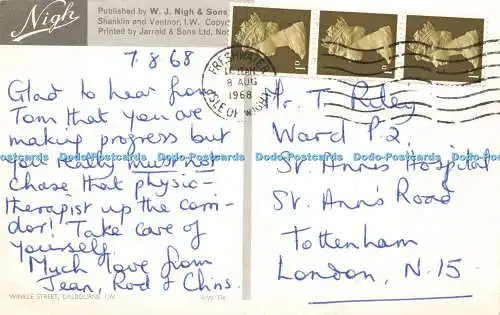 Nigh
Published by W. J. Nigh & Sons
Shanklin and Ventnor, I.W.
Printed by Jarrold & Sons Ltd,
7.8.68
Glad to hear from
Tom that you are
making progress but
you really must not
chase that physio-
therapist up the corri-
dor! Take care of
yourself.
Much love from
Jean, Rod & Chris.
WINKLE STREET, CALBOURNE I.W.
FRESHWATER
8 AUG
1968
ISLE OF WIGHT
1D
1D
1D
Mr. T. Riley
Ward P.2
St. Ann's Hospital
St. Ann's Road
Tottenham
London, N.15.
Dado-Postcards
www.delcampe.net